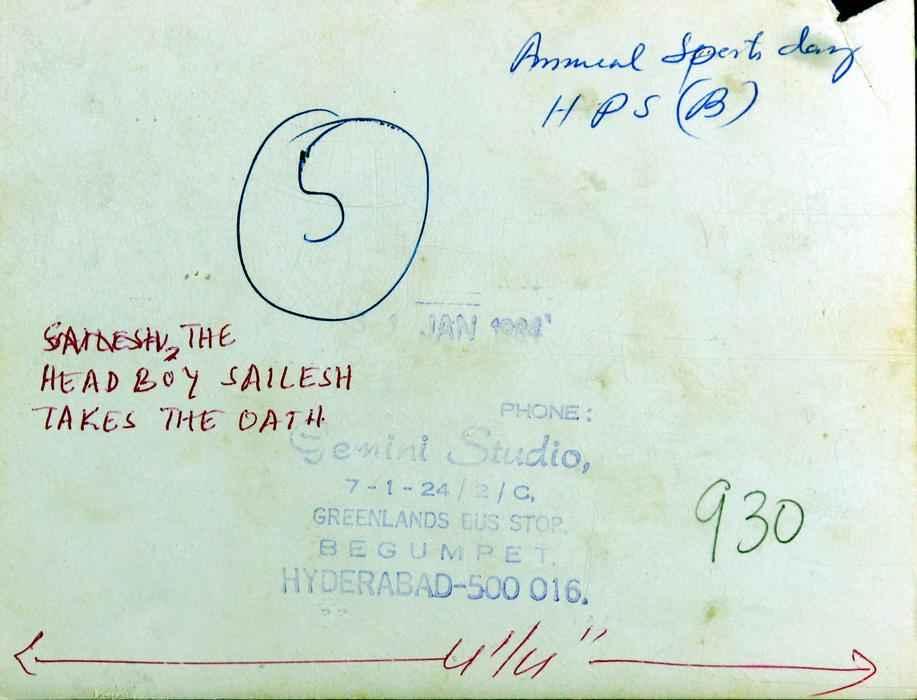 Annual Sports day
H P S (B)
5
JAN
SAILESH, THE
HEAD BOY SAILESH
TAKES THE OATH
PHONE:
Gemini Studio,
7-1-24/2/C,
GREENLANDS BUS STOP.
BEGUMPET.
HYDERABAD-500 016.
930